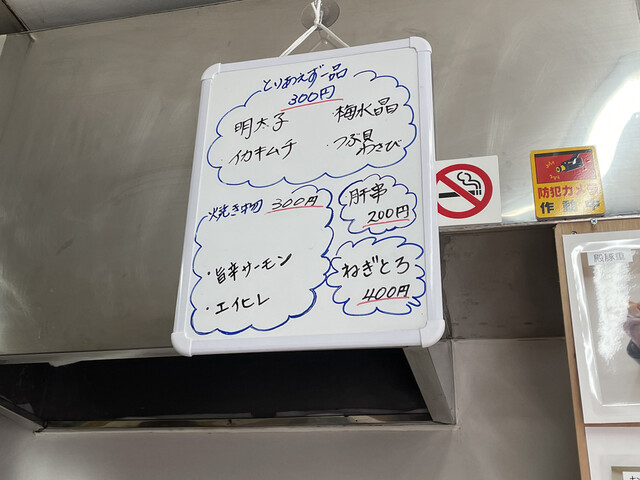 とりあえず一品
300円
明太子
・梅水晶
・イカキムチ
・つぶ貝
わさび
焼き物 300円
・旨辛サーモン
・エイヒレ
肝串
200円
ねぎとろ
400円
防犯カメラ
作動中